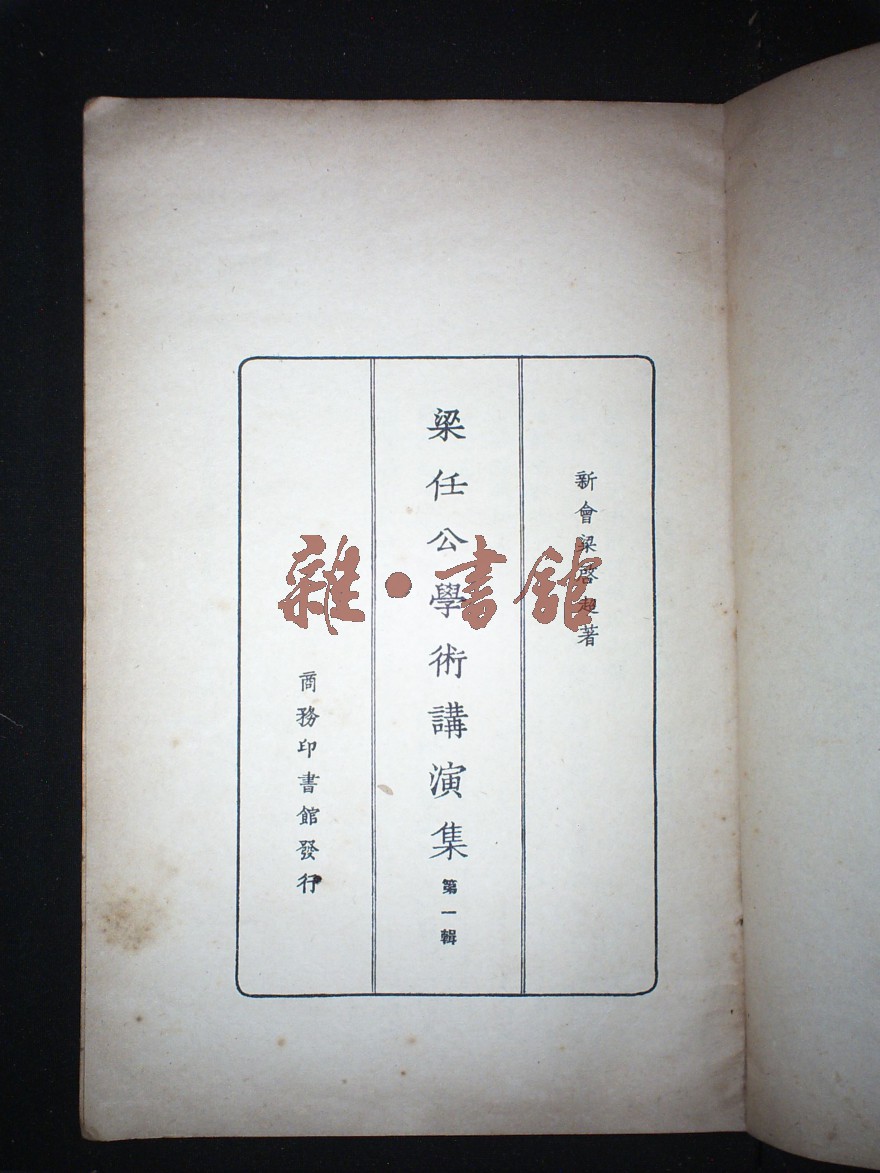 新會梁啓超著
梁任公學術講演集 第一輯
商務印書館發行
雜·書館